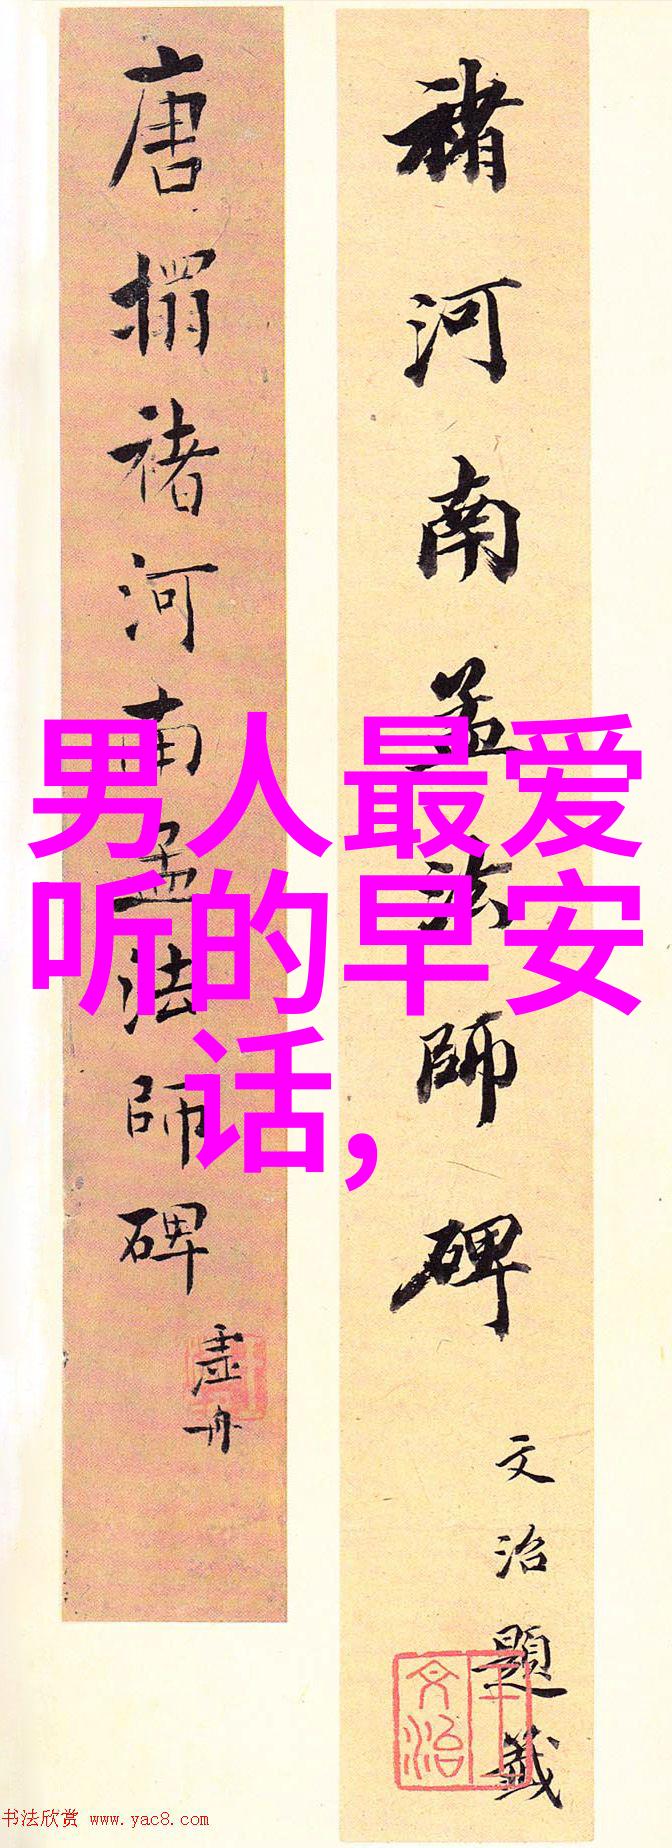 褚河南孟法師碑
文治題籤
王文治
唐搨褚河南孟法師碑
虛舟
男人最爱
听的早安
话,
书法欣赏 www.yac8.com